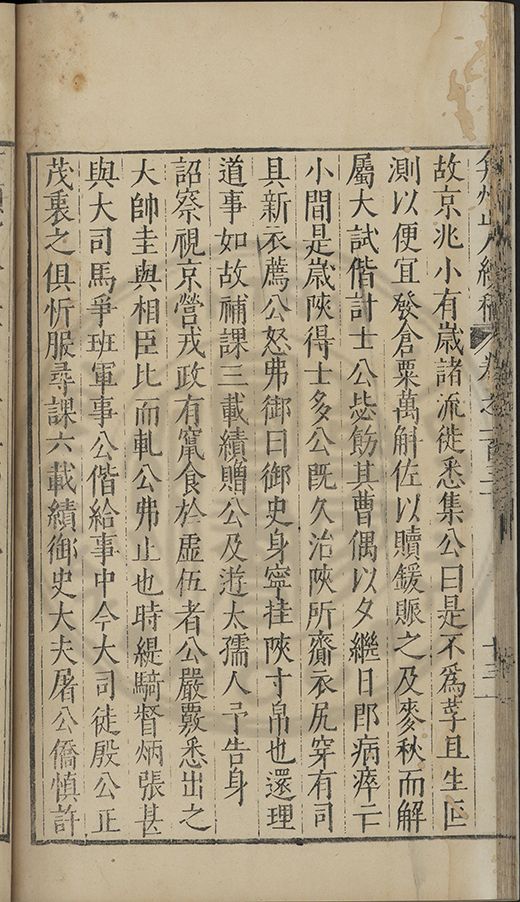 弇州山人續稿 卷之一百三十 十三
故京兆小有歲諸流徙悉集公曰是不爲莩且生叵
測以便宜發倉粟萬斛佐以贖鍰賑之及麥秋而解
屬大試偕計士公毖飭其曹偶以夕繼日郎病瘁亡
小間是歲陜得士多公旣久治陜所齎衣尻穿有司
具新衣薦公怒弗御曰御史身寧挂陜寸帛也還理
道事如故補課三載績贈公及游太孺人予告身
詔察視京營戎政有竄食於虛伍者公嚴覈悉出之
大帥圭與相臣比而軋公弗止也時緹騎督炳張甚
與大司馬爭班軍事公偕給事中今大司徒殷公正
茂裏之俱忻服尋課六載績御史大夫屠公僑愼許